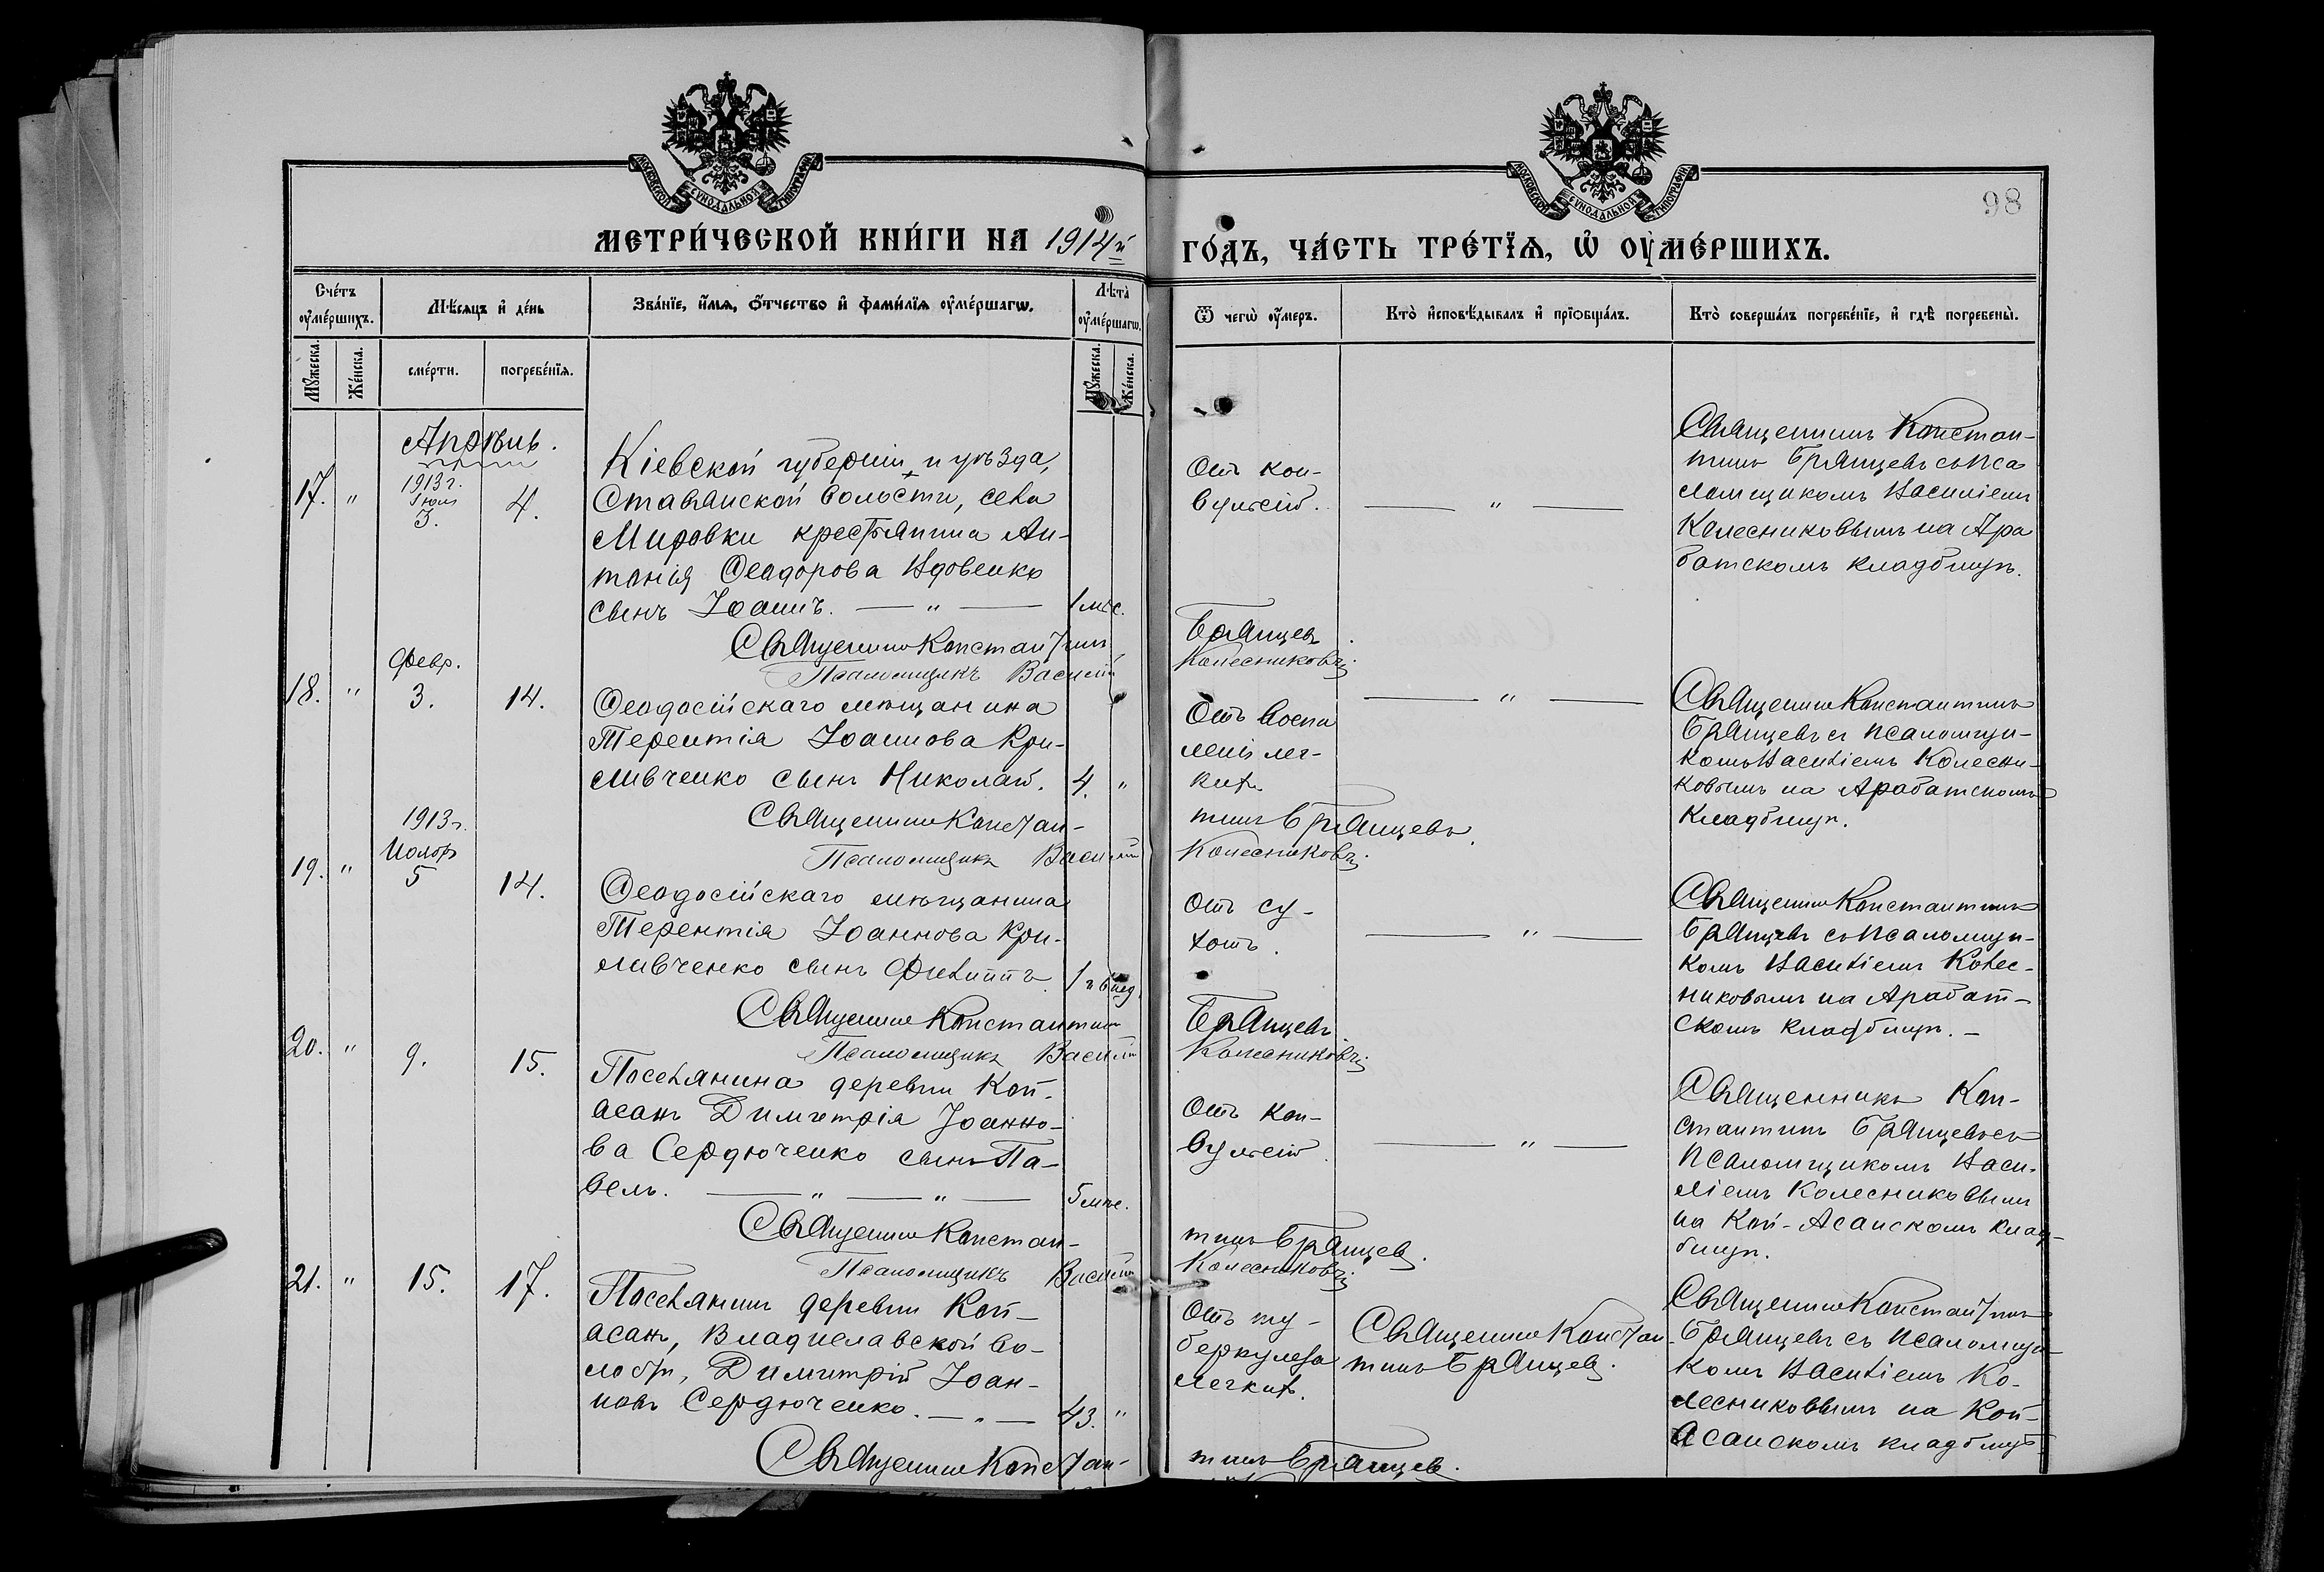 МОСКОВСКОЙ СУНОДАЛЬНОЙ ТИПОГРАФІИ
МОСКОВСКОЙ СУНОДАЛЬНОЙ ТИПОГРАФІИ
98
МЕТРИ́ЧЕСКОЙ КНИ́ГИ НА 1914й
ГО́ДЪ, ЧА́СТЬ ТРЕ́ТЇѦ, Ѡ҆ ОУ҆МЕ́РШИХЪ.
Сче́тъ оу҆ме́ршихъ.
Мѣ́сяцъ и҆ де́нь
Зва́нїе, и҆́мѧ, ѻ҆́тчество и҆ фами́лїѧ оу҆ме́ршагѡ.
Лѣ́та оу҆ме́ршагѡ.
Ѿ чегѡ̀ оу҆́меръ.
Кто̀ и҆сповѣ́дывалъ и҆ прїѡбща́лъ.
Кто̀ соверша́лъ погребе́нїе, и҆ гдѣ̀ погребены̀.
Мꙋ́жеска.
Же́нска.
сме́рти.
погребе́нїѧ.
Мꙋ́жеска.
Же́нска.
Апрѣль.
17.
"
1913 г.
Іюля
3.
4.
Кіевской губерніи и уѣзда,
Ставянской волости, села
Мировки крестьянина Ан-
тонія Ѳеодорова Вдовенко
сынъ Іоаннъ. — " —
1 мѣс.
Отъ кон-
вульсій.
— " —
Священникъ Констан-
тинъ Брянцевъ съ пса
ломщикомъ Василіемъ
Колесниковымъ на Ара
батскомъ кладбищѣ.
Священникъ Константинъ Брянцевъ.
Псаломщикъ Василій Колесниковъ.
18.
"
Февр.
3.
14.
Ѳеодосійскаго мѣщанина
Терентія Іоаннова Кри-
ливченко сынъ Николай.
4.
"
Отъ воспа
ленія лег-
кихъ.
— " —
Священникъ Константинъ
Брянцевъ съ псаломщи-
комъ Василіемъ Колесни-
ковымъ на Арабатскомъ
кладбищѣ.
Священникъ Констан- тинъ Брянцевъ.
Псаломщикъ Василій Колесниковъ.
19.
"
1913 г.
Ноябр
5
14.
Ѳеодосійскаго мѣщанина
Терентія Іоаннова Кри-
ливченко сынъ Филиппъ.
Отъ су-
хотъ.
— " —
Священникъ Константинъ
Брянцевъ съ псаломщи-
комъ Василіемъ Колес-
никовымъ на Арабат-
скомъ кладбищѣ. —
Священникъ Константинъ Брянцевъ
Псаломщикъ Василій Колесниковъ.
20.
"
9.
15.
Поселянина деревни Кой-
асанъ Димитрія Іоанно-
ва Сердюченко сынъ Па-
велъ. — " — " —
5 мѣс.
Отъ кон-
вульсій.
— " —
Священникъ Кон-
стантинъ Брянцевъ съ
псаломщикомъ Васи-
ліемъ Колесниковымъ
на Кой-Асанскомъ клад-
бищѣ.
Священникъ Констан- тинъ Брянцевъ.
Псаломщикъ Василій Колесниковъ.
21.
"
15.
17.
Поселянинъ деревни Кой-
асанъ, Владиславской во-
лости, Димитрій Іоан-
новъ Сердюченко. — " —
43.
"
Отъ ту-
беркулеза
легкихъ.
Священникъ Констан-
тинъ Брянцевъ.
Священникъ Константинъ
Брянцевъ съ псаломщи-
комъ Василіемъ Ко-
лесниковымъ на Кой-
Асанскомъ кладбищѣ
Священникъ Констан- тинъ Брянцевъ.